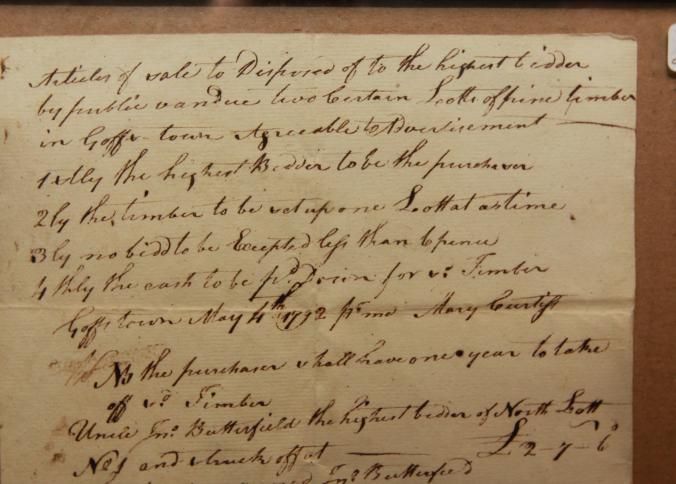 Articles of sale to Disposed of to the highest bidder
by public vandue two Certain Lotts of pine timber
in Goffs-town Agreeable to Advertisement
1stly the highest Bidder to be the purchaser
2ly the timber to be set up one Lott at a time
3ly no bidd to be Excepted less than 6 pence
4thly the cash to be pd Down for sd Timber
Goffstown May 4th 1792 pr me Mary Curtiss
NB the purchaser shall have one year to take
off sd Timber
Uncle Jno Butterfield the highest bidder of North Lott
No 1 and struck off at £2-7-6
Jno Butterfield